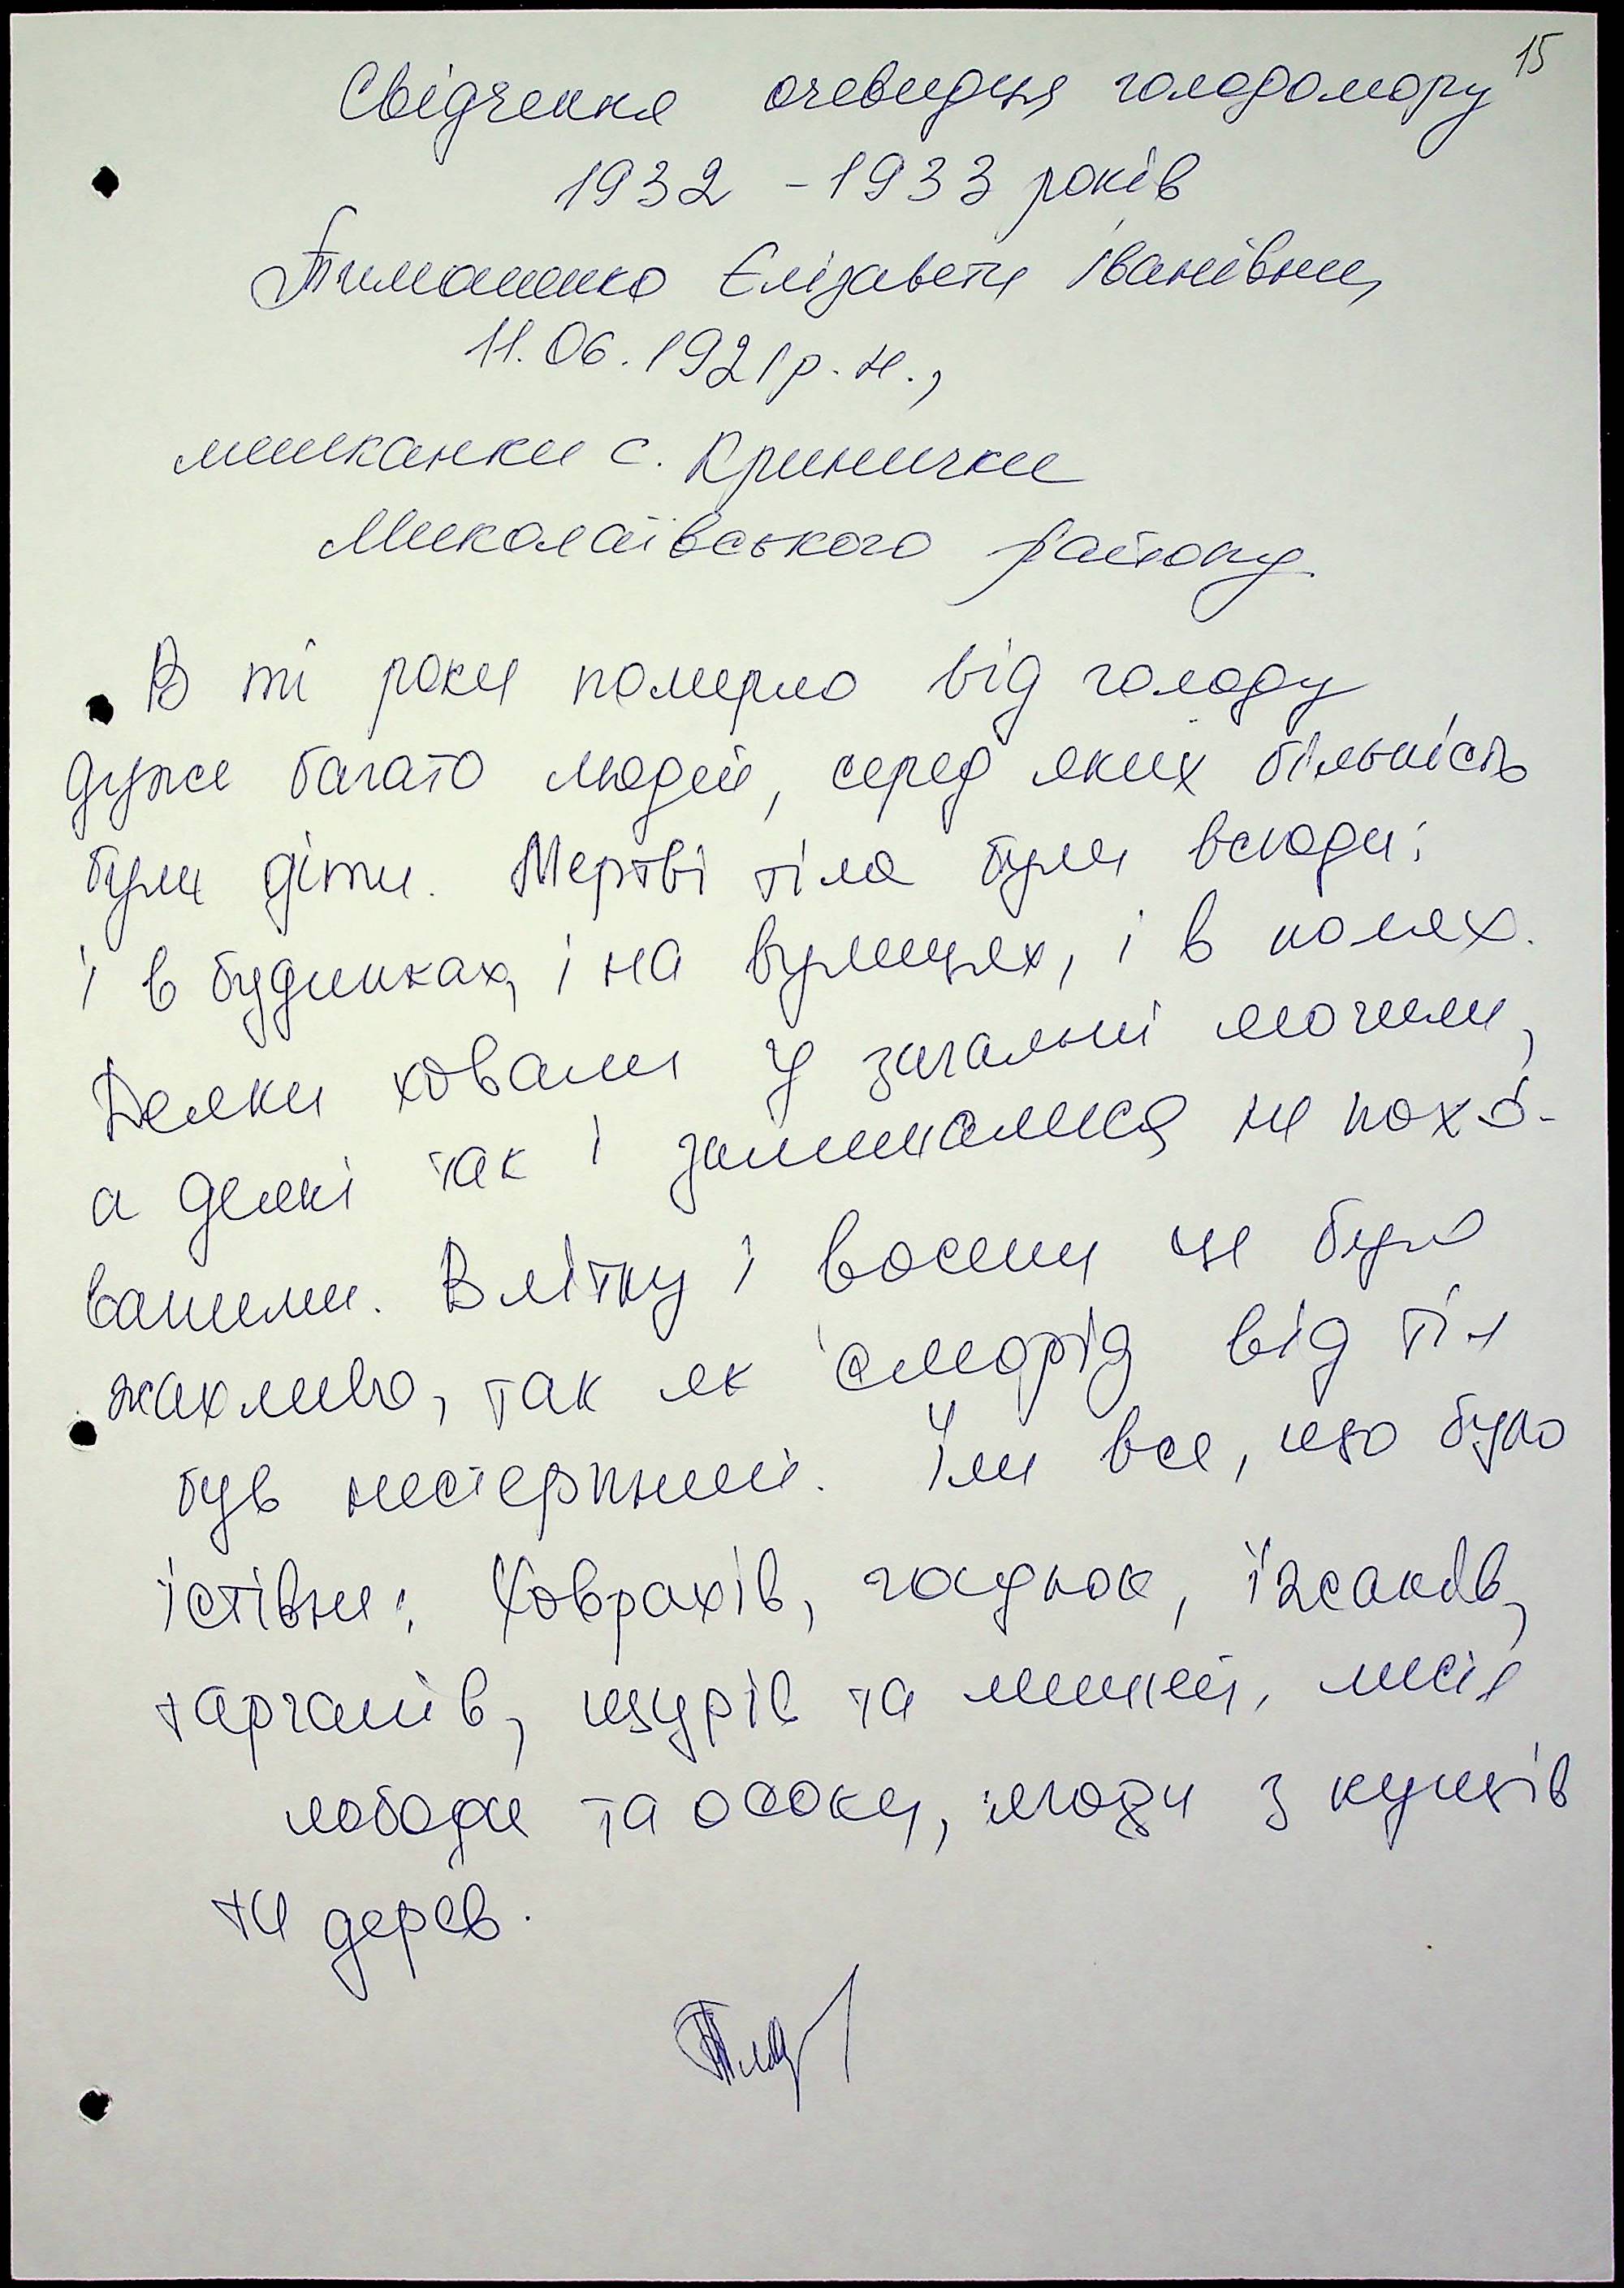 15
Свідчення очевидця голодомору
1932 - 1933 років
Тимошенко Єлізавети Іванівни,
11.06.1921 р.н.,
мешканки с. Кринички
Миколаївського району
В ті роки померло від голоду
дуже багато людей, серед яких більшість
були діти. Мертві тіла були всюди:
і в будинках, і на вулицях, і в полях.
Деяки ховали у загальні могили,
а деякі так і залишалися не похо-
ваними. Влітку і восени це було
жахливо, так як сморід від тіл
був нестерпний. Їли все, що було
їстівне: Ховрахів, гадюк, їжаків,
тарганів, щурів та мишей, листя
лободи та осоки, ягоди з кущів
та дерев.